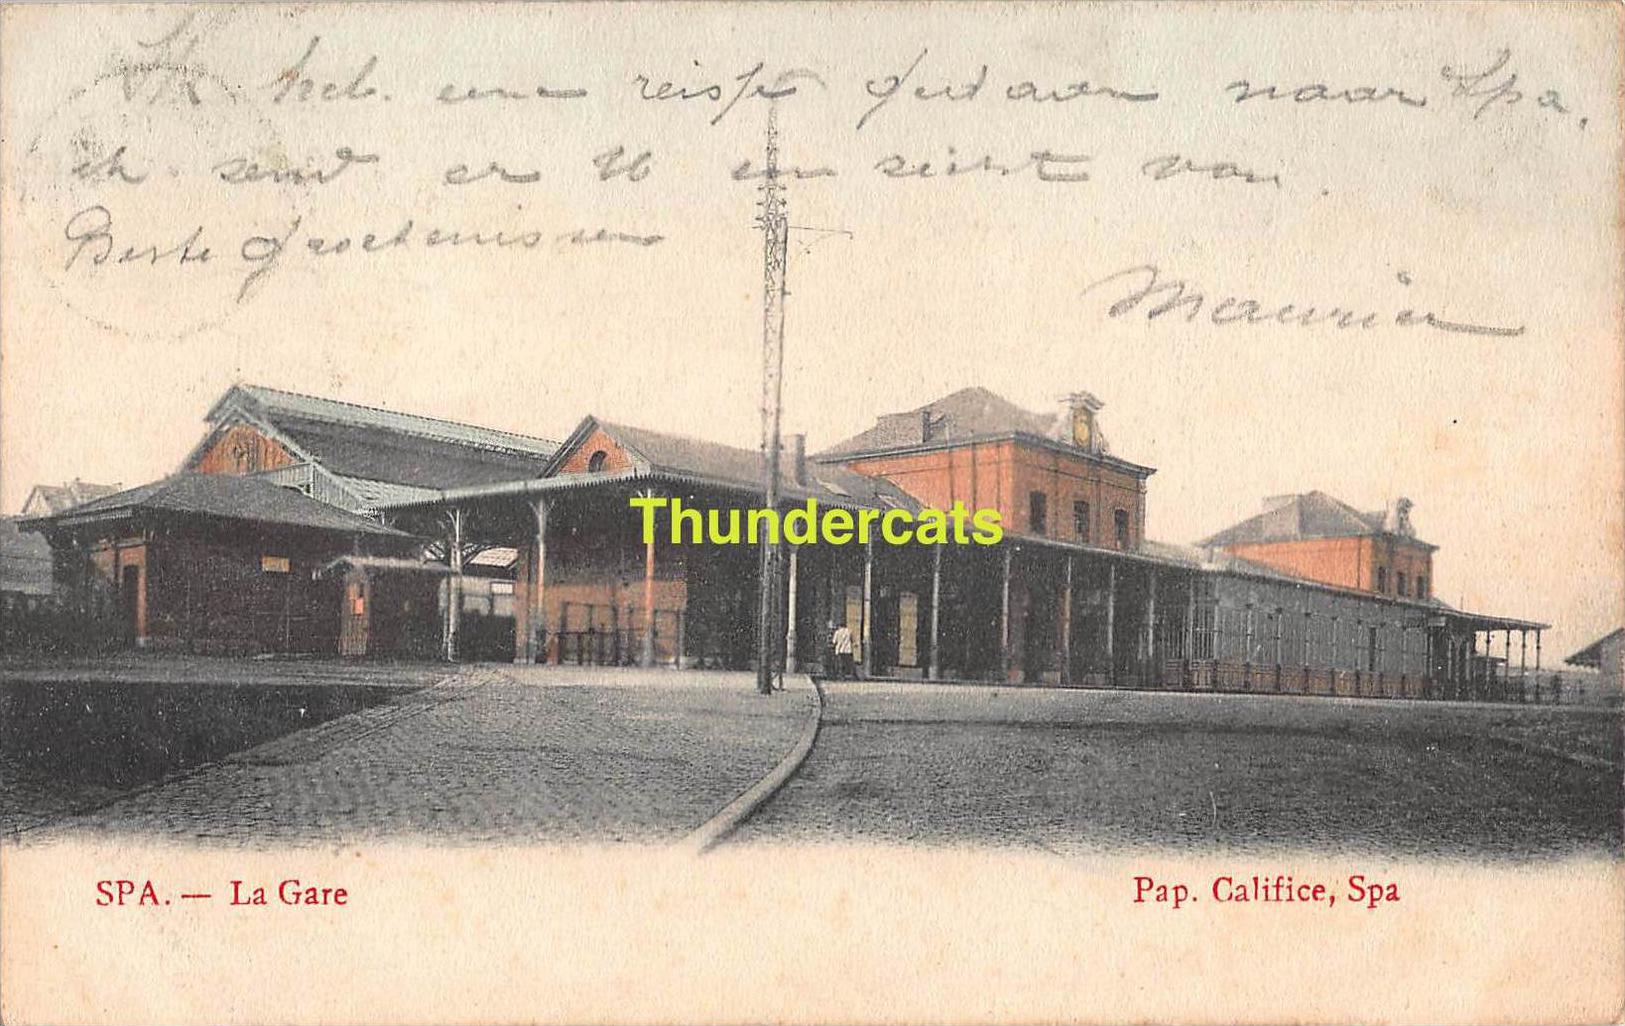 Ik heb. eene reisje gedaan naar Spa,
ik send er U een zicht van.
Beste groetenissen
Maurice
Thundercats
SPA. — La Gare
Pap. Califice, Spa